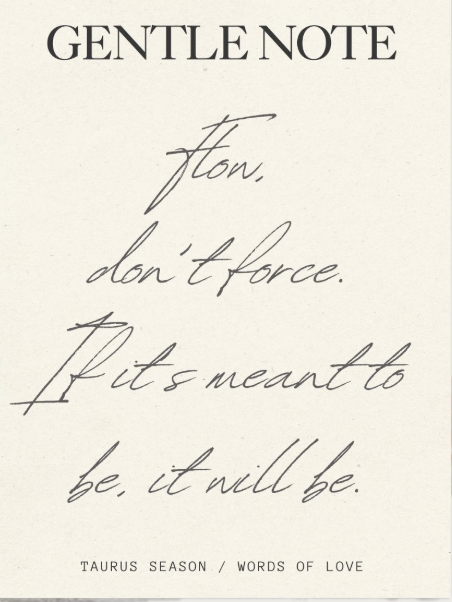 GENTLE NOTE
Flow,
don't force.
If it's meant to
be, it will be.
TAURUS SEASON / WORDS OF LOVE